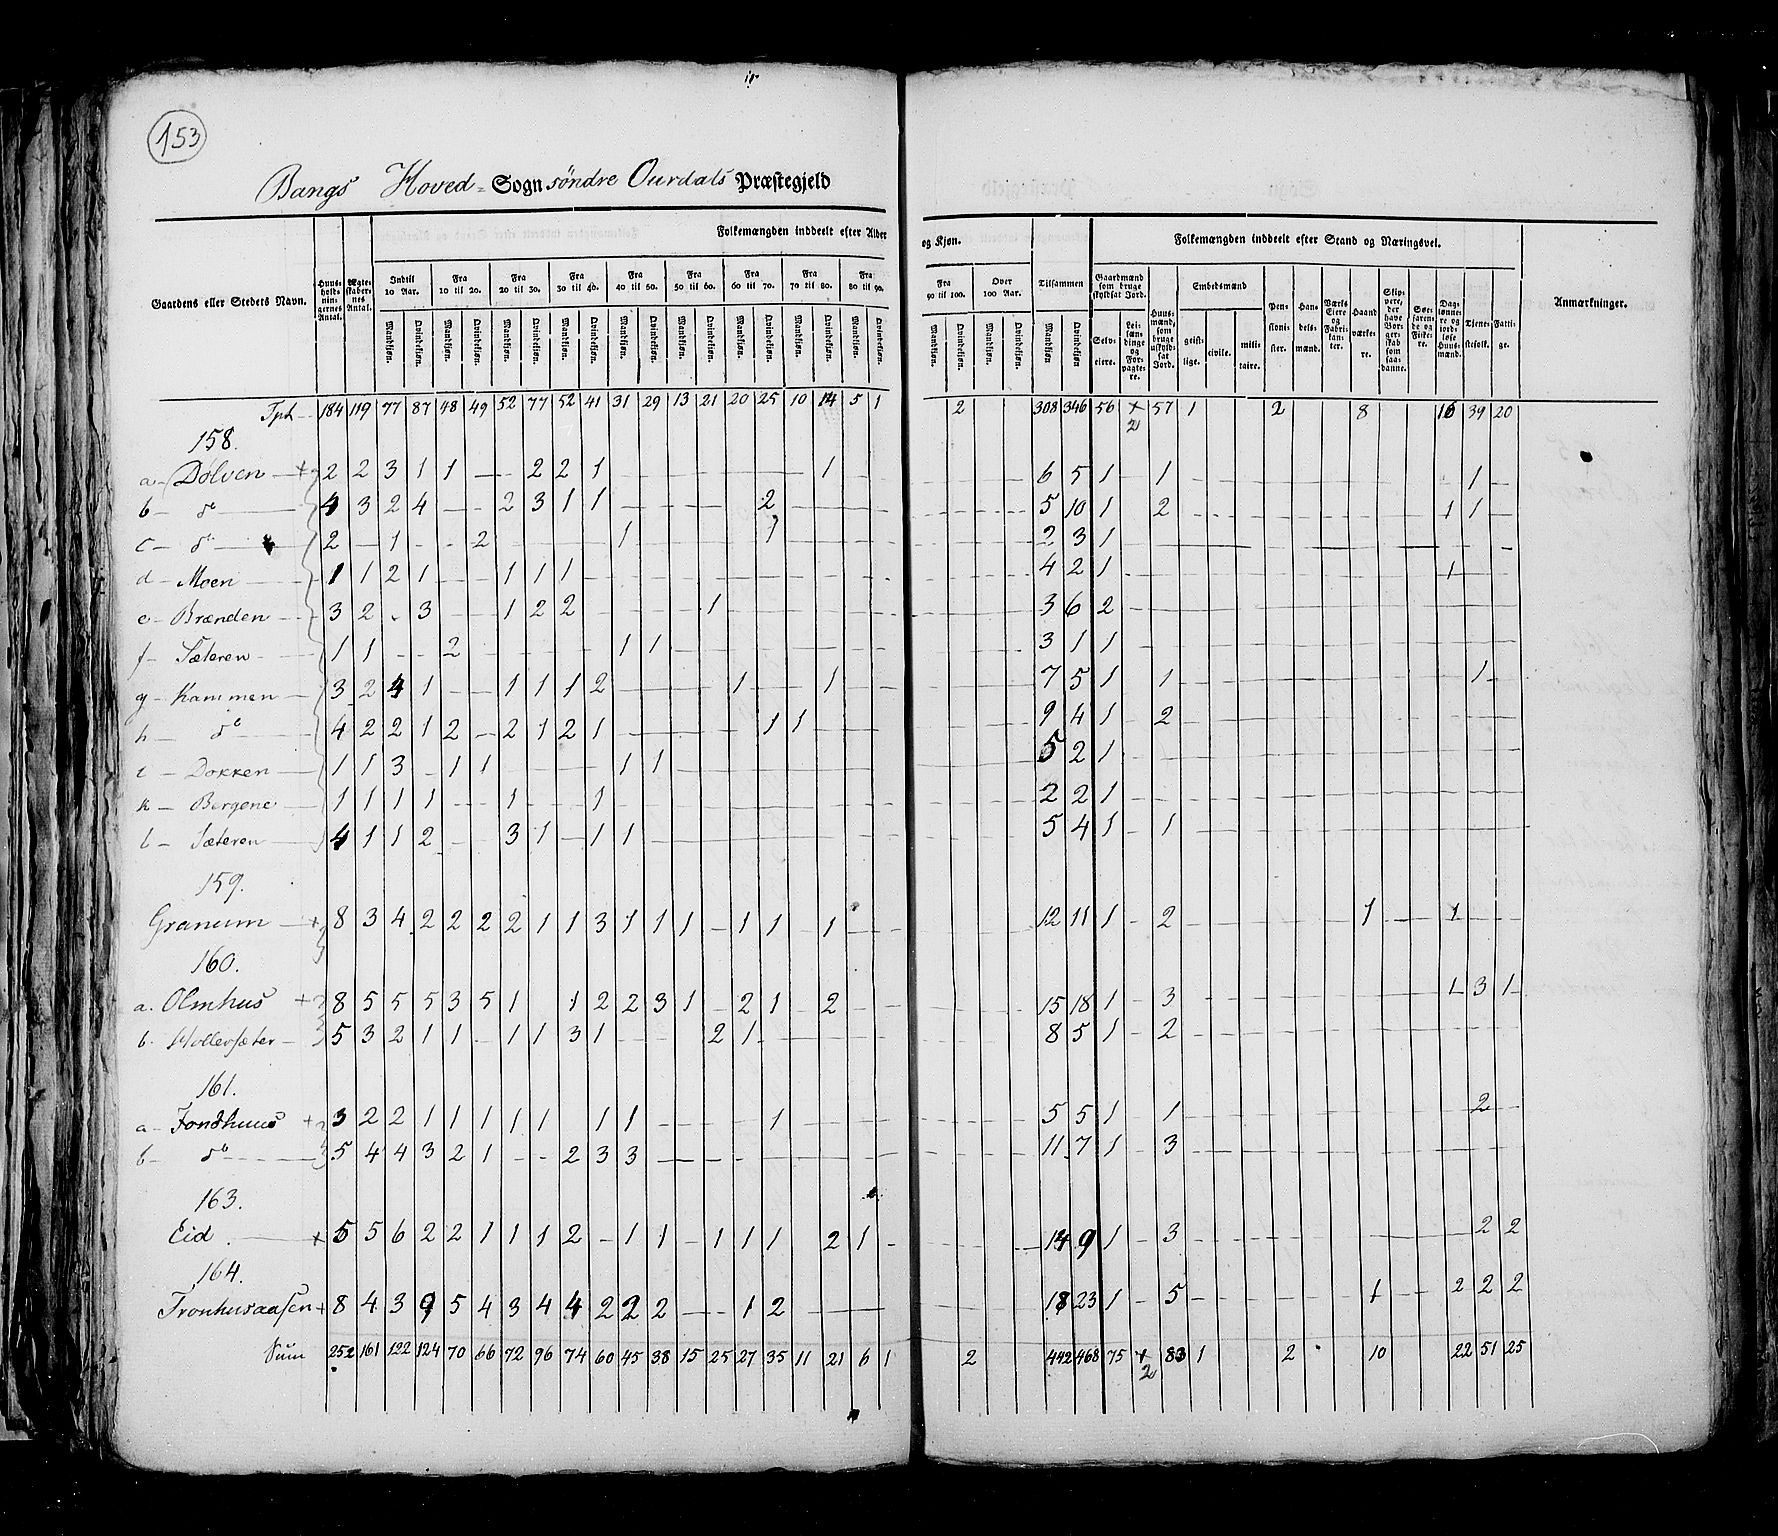 153
Bangs Hoved-Sogn söndre Ourdals Præstegjeld
Folkemængden inddeelt efter Alder og Kjøn. Folkemængden inddeelt efter Stand og Næringsvei.
Gaardens eller Stedets Navn. Huus-hold-nin-gernes Antal. Ægte-skaber-nes Antal. Indtil 10 Aar. Fra 10 til 20. Fra 20 til 30. Fra 30 til 40. Fra 40 til 50. Fra 50 til 60. Fra 60 til 70. Fra 70 til 80. Fra 80 til 90. Fra 90 til 100. Over 100 Aar. Tilsammen Gaardmænd som bruge skyldsat Jord. Huus-mænd, som bruge uskyld-sat Jord. Embedsmænd Pen-sionis-ter. Han-dels-mænd. Værks Eiere og Fabri-kan-ter. Haand-værke-re. Skip-pere, der have Bor-ger-skab som saa-danne. Søe-faren-de og Fiske-re. Dag-lønne-re og jord-løse Huus-mænd. Tjene-stefolk. Fatti-ge. Anmærkninger.
Mandkjøn. Qvindekjøn. Mandkjøn. Qvindekjøn. Mandkjøn. Qvindekjøn. Mandkjøn. Qvindekjøn. Mandkjøn. Qvindekjøn. Mandkjøn. Qvindekjøn. Mandkjøn. Qvindekjøn. Mandkjøn. Qvindekjøn. Mandkjøn. Qvindekjøn. Mandkjøn. Qvindekjøn. Mandkjøn. Qvindekjøn. Mandkjøn Qvindekjøn Selv-eiere. Lei-læn-dinge og For-pagte-re. geist-lige. civile. mili-taire.
184 119 77 87 48 49 52 77 52 41 31 29 13 21 20 25 10 14 5 1 2 308 346 56 + 2 57 1 2 8 16 39 20
158.
a - Dölven - + 2 2 3 1 1 — — 2 2 1 1 6 5 1 - 1 1
b - d° 4 3 2 4 - - 2 3 1 1 2 5 10 1 2 1 1
c - d° 2 - 1 - - 2 1 1 2 3 1
d - Moen 1 1 2 1 - - 1 1 1 4 2 1 1
e - Brænden 3 2 - 3 - - 1 2 2 1 3 6 2
f - Sæteren 1 1 - - 2 1 1 3 1 1
g - Kammen 3 2 4 1 - - 1 1 1 2 1 1 7 5 1 - 1 1
h - d° 4 2 2 1 2 - 2 1 2 1 1 1 9 4 1 - 2
i - Dokken 1 1 3 - 1 1 1 1 5 2 1
k - Bergene 1 1 1 1 - - 1 - - 1 2 2 1
l - Sæteren 4 1 1 2 - - 3 1 - 1 1 5 4 1 - 1
159.
Granum - + 8 3 4 2 2 2 2 1 1 3 1 1 1 - 1 1 - 1 12 11 1 - 2 1 1
160.
a. Olmhus + 8 5 5 5 3 5 1 1 2 2 3 1 - 2 1 - 2 15 18 1 - 3 1 3 1
b. Hollersæter - 5 3 2 1 1 - 1 1 3 1 2 1 8 5 1 - 2
161.
a - Fondhuus + 3 2 2 1 1 1 1 1 1 1 1 5 5 1 - 1 2
b - d° 5 4 4 3 2 1 - - 2 3 3 11 7 1 - 3
163.
Eid + 5 5 6 2 2 1 1 1 2 - 1 1 - 1 1 1 2 1 - 14 9 1 - 3 2 2
164.
Fronhusaasen + 8 4 3 9 5 4 3 4 4 2 2 2 — — 1 2 18 23 1 - 5 1 2 2 2
Sum 252 161 122 124 70 66 72 96 74 60 45 38 15 25 27 35 11 21 6 1 2 442 468 75 + 2 83 1 2 10 22 51 25